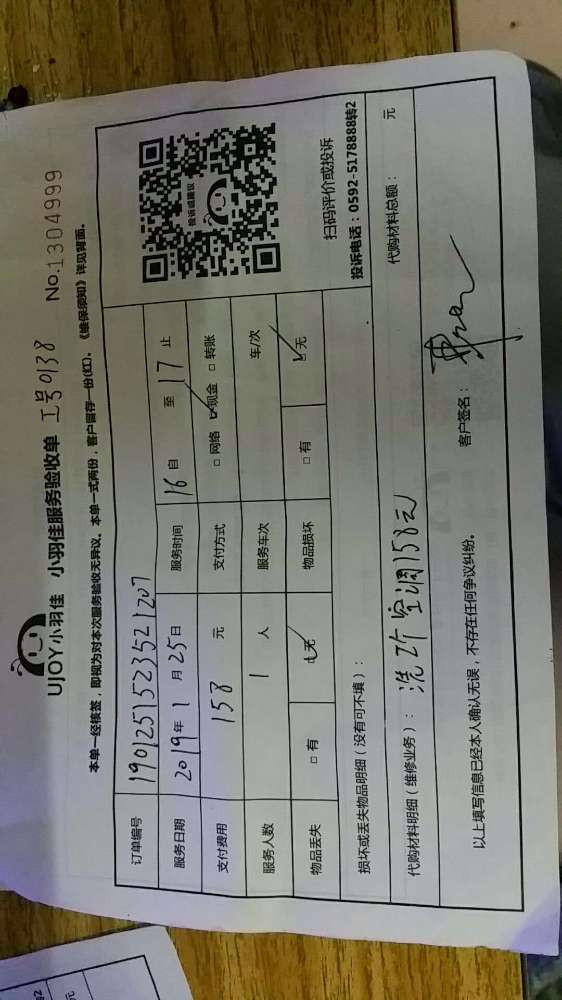 UJOY小羽佳 小羽佳服务验收单 工号0138 No:1304999
本单一经核签，即视为对本次服务验收无异议。本单一式两份，客户留存一份(红)。《维保须知》详见背面。
订单编号 1901251523521207
服务日期 2019年1月25日 服务时间 16自 至17止
支付费用 158元 支付方式 □网络 ☑现金 □转账
服务人数 1人 服务车次 车/次
物品丢失 □有 ☑无 物品损坏 □有 ☑无
投诉或建议
扫码评价或投诉
投诉电话：0592-5178888转2
损坏或丢失物品明细（没有可不填）：
代购材料明细（维修业务）： 洗 空调158元 代购材料总额： 元
以上填写信息已经本人确认无误，不存在任何争议纠纷。 客户签名：
元